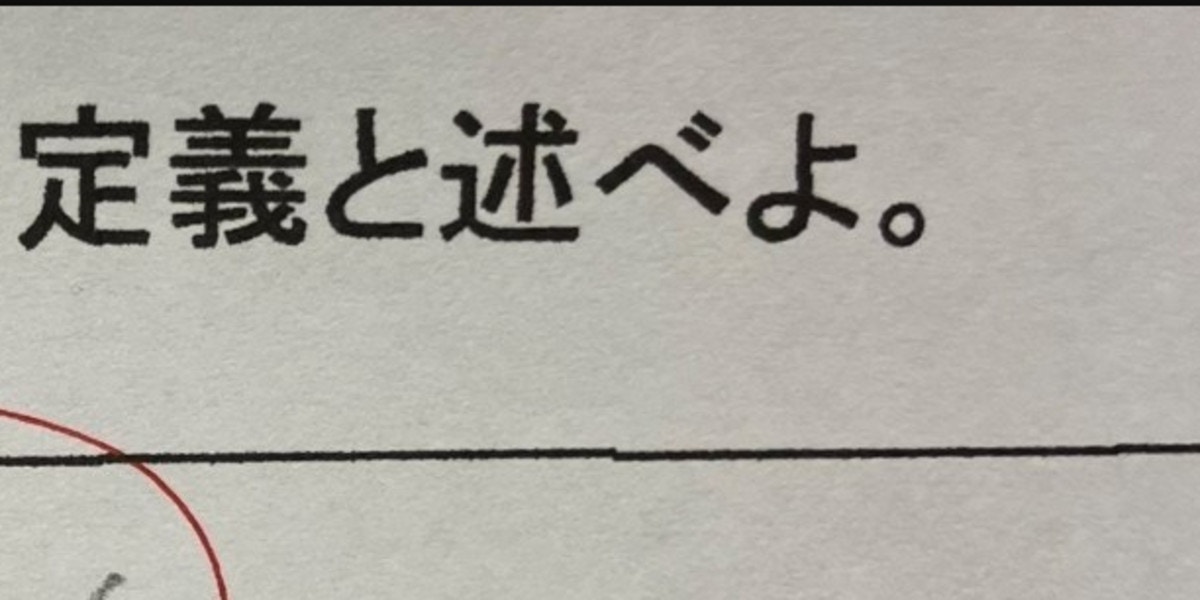 定義と述べよ。